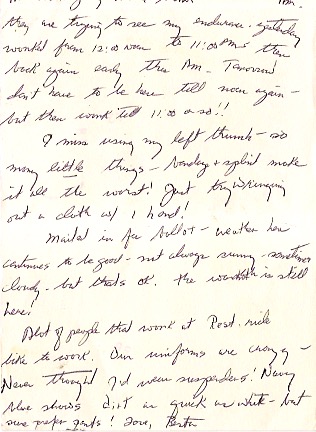 they are trying to see my endurance. yesterday
work'd from 12:00 noon to 11:00 PM & then
back again early this AM. Tomorrow
don't have to be here till noon again -
but then work till 11:00 or so!!
I miss using my left thumb - so
many little things - bandage & splint make
it all the worst! Just try wringing
out a cloth w/ 1 hand!
Mailed in for ballot - weather here
continues to be good - not always sunny - sometimes
cloudy - but thats ok. The warmth is still
here!
Alot of people that work at Rest. ride
bike to work. Our uniforms are crazy -
Never thought I'd wear suspenders! Navy
blue shows dirt as quick as white - but
sure prefer pants! Love,